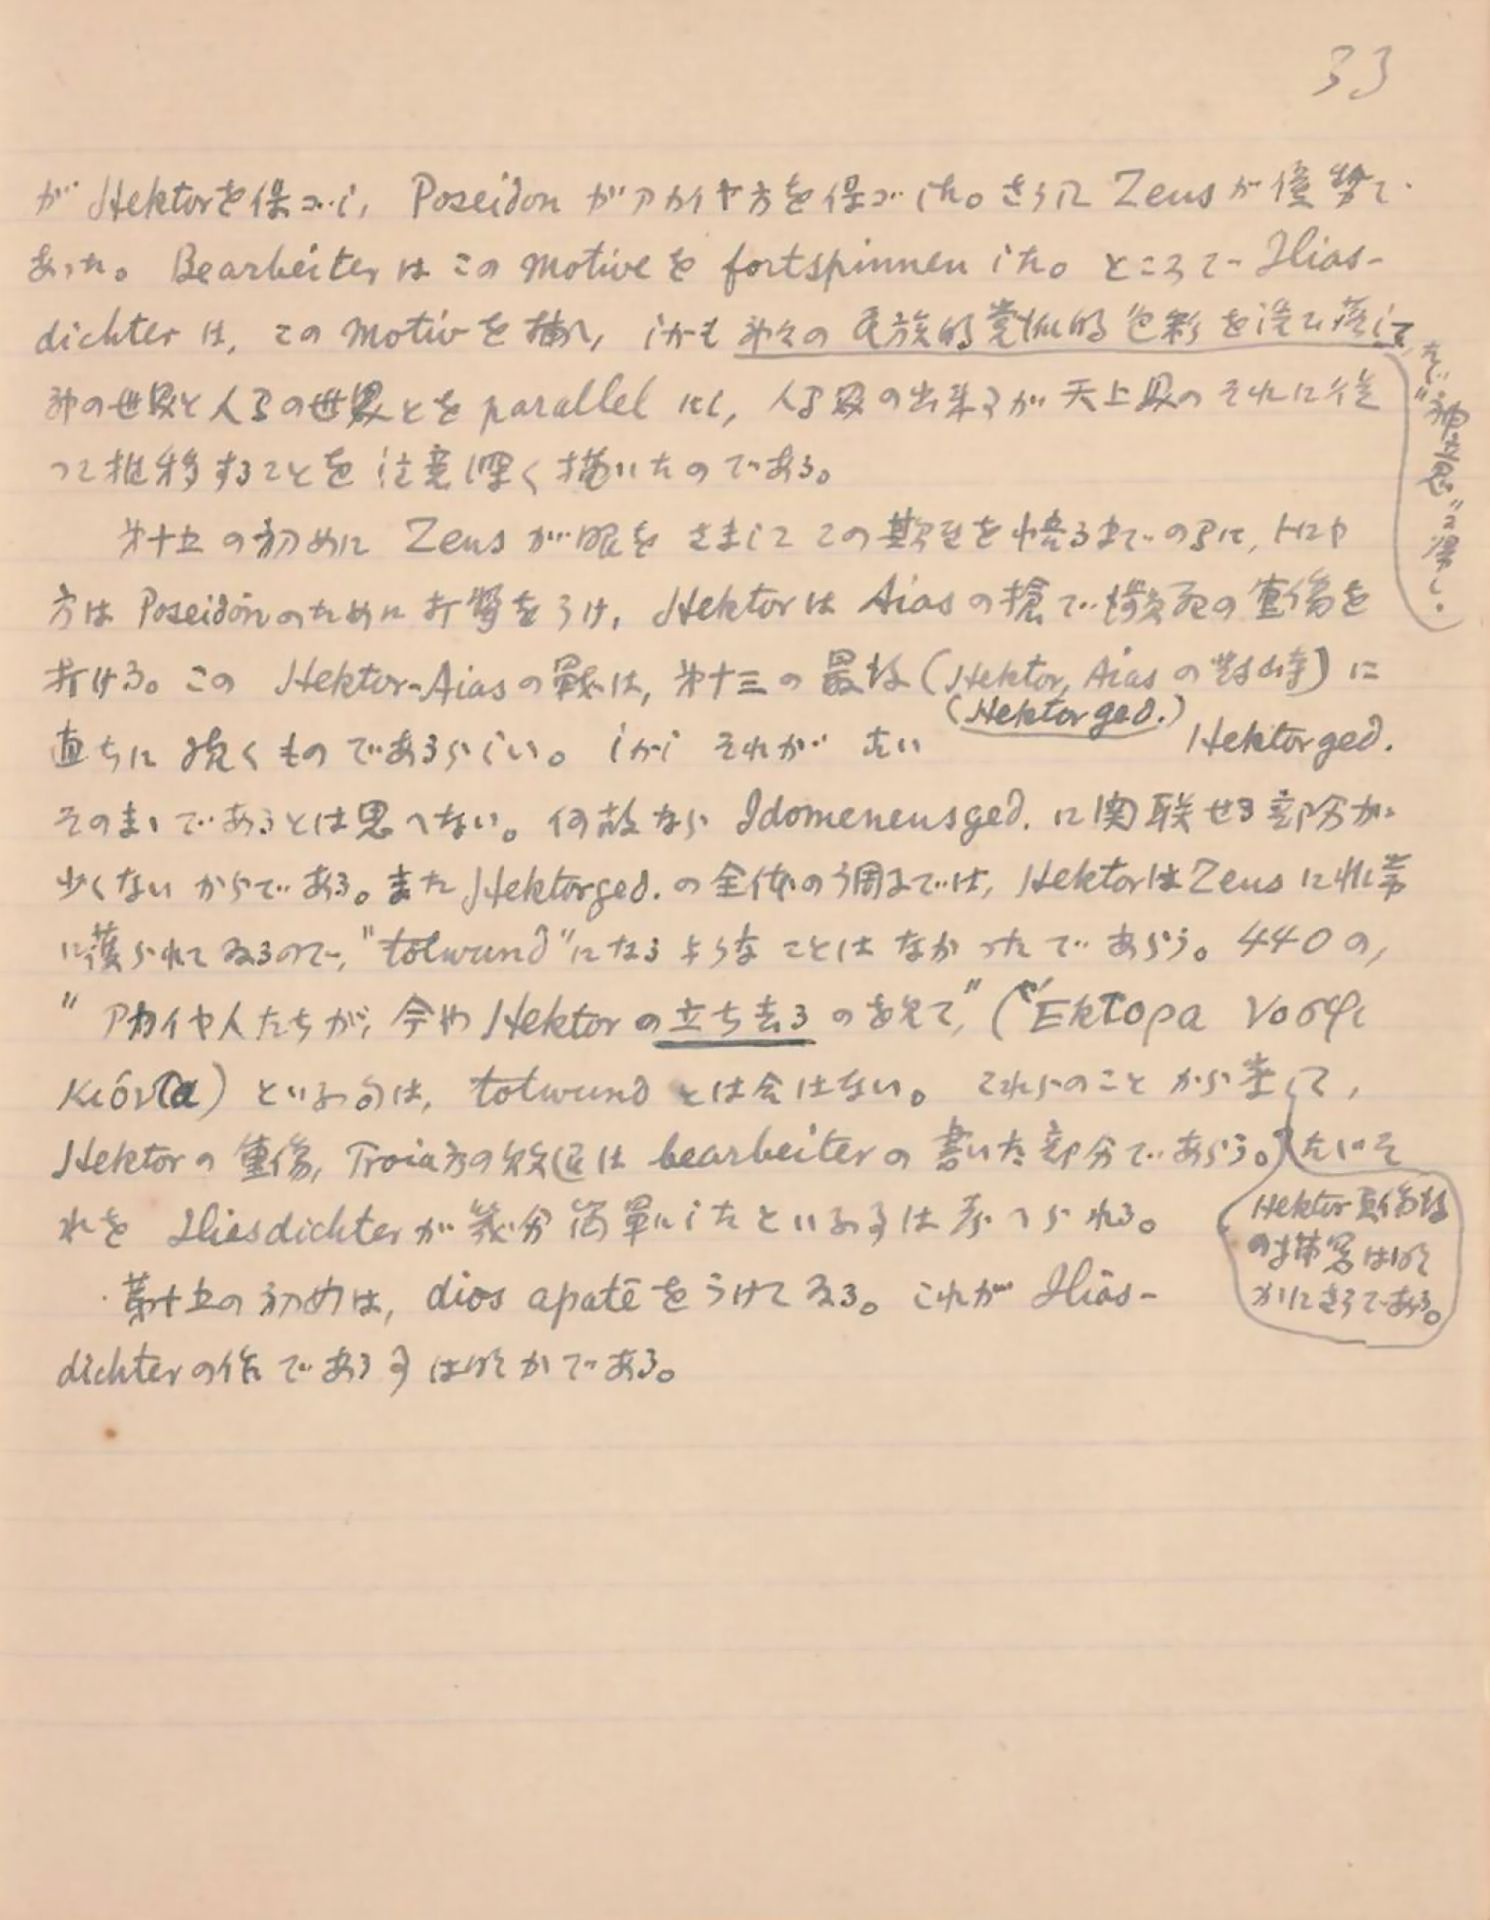 33
が Hektorを保ゴし, Poseidon がアカイヤ方を保ゴした。さらに Zeus が優勢で
あった。 Bearbeiter は この motive を fortspinnen した。 ところで Ilias-
dichter は, この motiv を捕へ, しかも 神々の 民族的党派的色彩を洗ひ落して
たゞ "神意思" を得し.
神の世界と人間の世界とを parallel にし, 人間界の出来事が 天上界の それに従
って推移することを 注意深く描いたのである。
第十五 の初めに Zeus が眼を さまして この欺きを悟るまでの間に, トロヤ
方は Poseidonのために 打撃をうけ, Hektorは Aias の槍で 瀕死の 重傷を
受ける。この Hektor-Aias の戦は, 第十三の 最後 (Hektor, Aias の対峙) に
(Hektorged.)
直ちに 続くもの であるらしい。 しかし それが 古い Hektorged.
そのまゝであるとは思へない。何故なら Idomeneusged. に関聯せる部分が
少くないからである。また Hektorged. の全体の調子では, HektorはZeus に
に護られてゐるので, "totwund" になる ような ことは なかったであらう。 440 の,
"アカイヤ人たちが, 今や Hektorの立ち去るのを見て," (Ἕκτορα νόσφι
κιόντα) といふ句は, totwund とは合はない。 これらのこと から 察して,
Hektorの 重傷, Troia方の敗退は bearbeiter の 書いた部分であらう。たゞそ
れを Iliasdichter が幾分 簡単にしたといふ事は考へられる。
Hektor 負傷後
の描写は明
かにさうである。
第十五の初めは, dios apatē をうけてゐる。これが Ilias-
dichterの作である事は明かである。